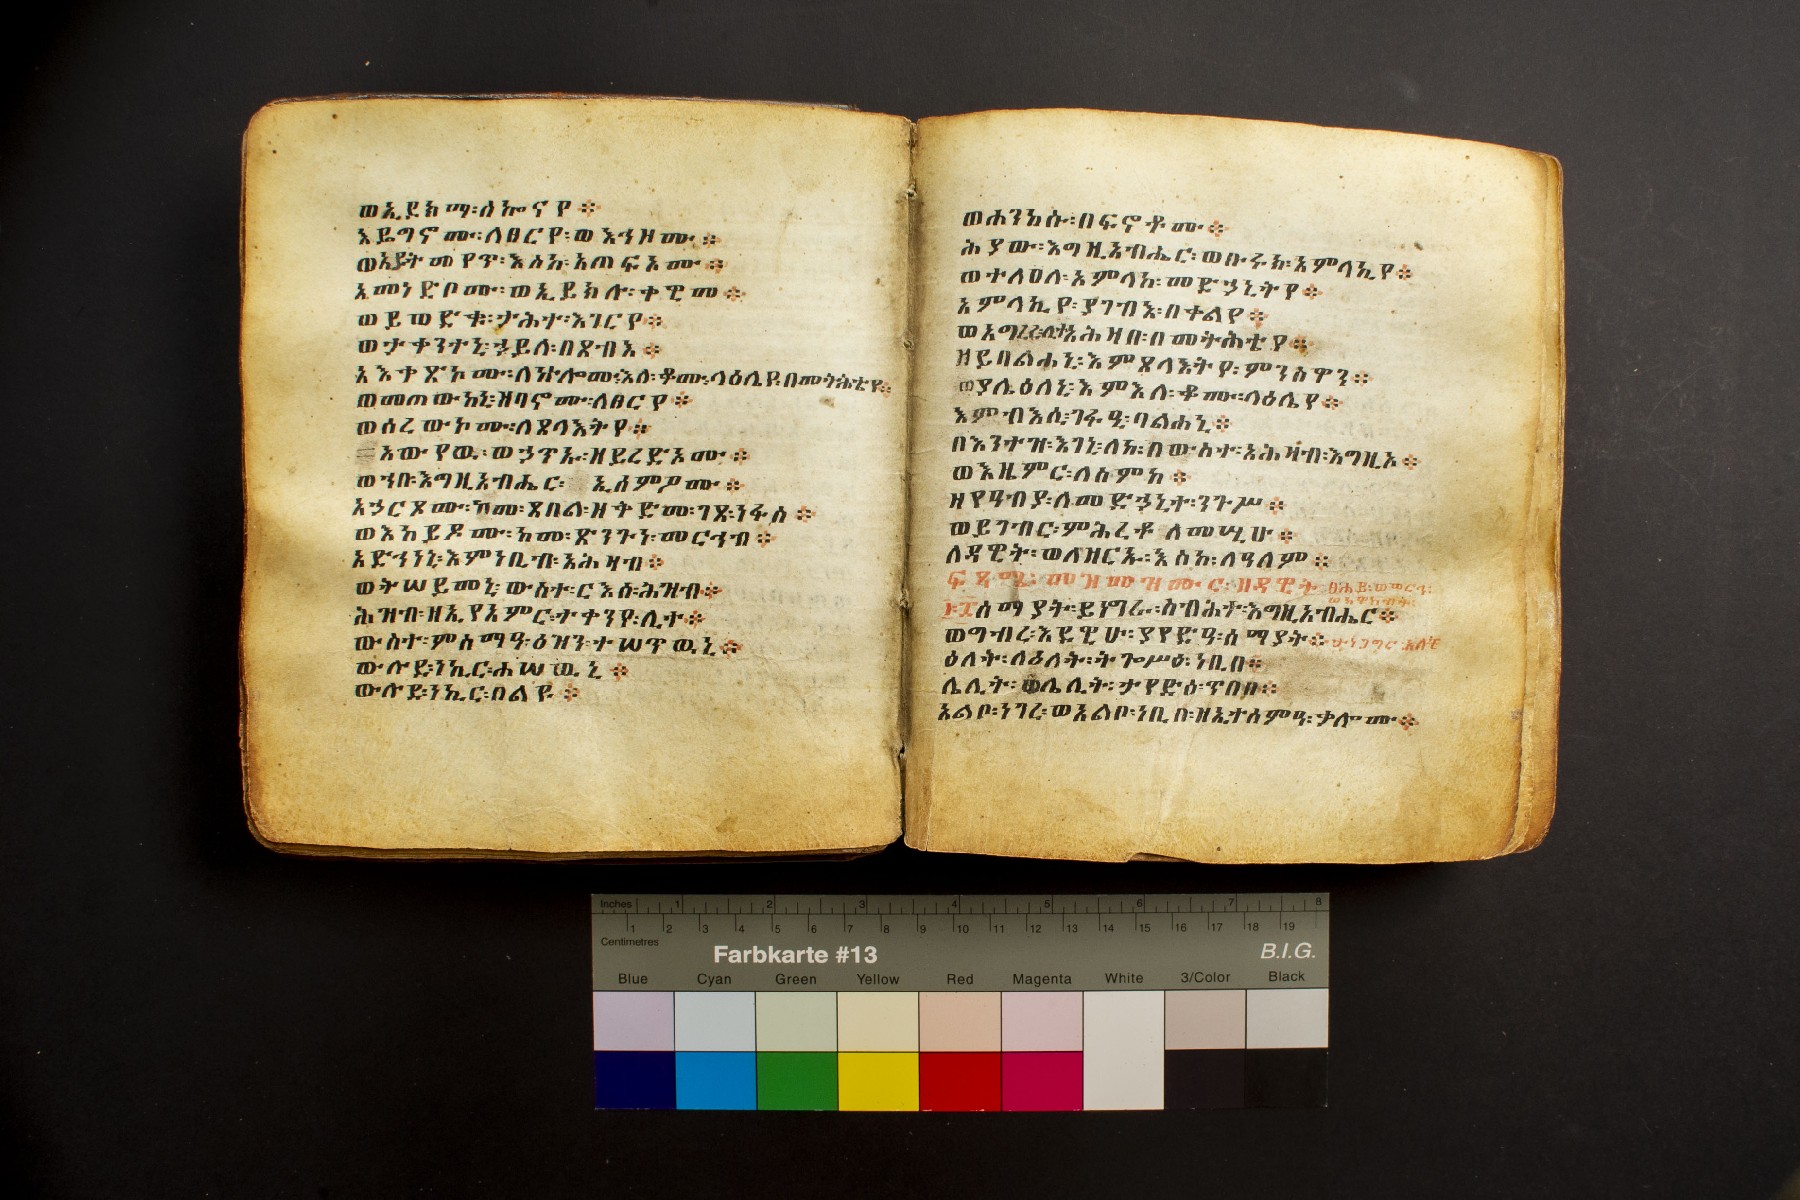 ወኢደክማ፡ሰኰናየ፨
እዴግኖሙ፡ለፀርየ፡ወእኅዞሙ፨
ወአይትመየጥ፡እስከ፡አጠፍአሙ፨
አመነድቦሙ፡ወኢይክሉ፡ቀዊመ፨
ወይወድቁ፡ታሕተ፡እገርየ፨
ወታቀንተኒ፡ኃይለ፡በጸብእ፨
አእቀጽኮሙ፡ለኵሎሙ፡እለ፡ቆሙ፡ላዕሌየ፡በመትሕቴየ፨
ወመጠውከኒ፡ዘባኖሙ፡ለፀርየ፨
ወሰረውኮሙ፡ለጸላእትየ፨
አውየዉ፡ወኃጥኡ፡ዘይረድኦሙ፨
ወኀበ፡እግዚአብሔር፡ ኢሰምዖሙ፨
አኃርጾሙ፡ከመ፡ጸበል፡ዘቅድመ፡ገጸ፡ነፋስ፨
ወእከይዶሙ፡ከመ፡ጽንጕነ፡መርኅብ፨
አድኅነኒ፡እምነቢብ፡አሕዛብ፨
ወትሠይመኒ፡ውስተ፡ርእሰ፡ሕዝብ፨
ሕዝብ፡ዘኢየአምር፡ተቀንየ፡ሊተ፨
ውስተ፡ምስማዓ፡ዕዝን፡ተሠጥዉኒ፨
ውሉደ፡ነኪር፡ሐሠዉኒ፨
ውሉደ፡ነኪር፡በልዩ፨
ወሐንከሱ፡በፍኖቶሙ፨
ሕያው፡እግዚአብሔር፡ወቡሩክ፡አምላኪየ፨
ወተለዐለ፡አምላከ፡መድኃኒትየ፨
አምላኪየ፡ያገብእ፡በቀልየ፨
ወአግረረ፡ሊተ፡አሕዛበ፡በመትሕቴየ፨
ዘይባልሐኒ፡እምጸላእትየ፡ምንስዋን፨
ወያሌዕለኒ፡እምእለ፡ቆሙ፡ላዕሌየ፨
እምብእሲ፡ገፋዒ፡ባልሐኒ፨
በእንተዝ፡እገኒ፡ለከ፡በውስተ፡አሕዛብ፡እግዚኦ፨
ወእዜምር፡ለስምከ፨
ዘየዓብያ፡ለመድኃኒተ፡ንጉሥ፨
ወይገብር፡ምሕረቶ ለመሢሁ፨
ለዳዊት፡ወለዘርኡ፡እስከ፡ለዓለም፨
ፍጻሜ፡ መዝመዝሙር፡ ዘዳዊት
፲፰ሰማያት፡ይነግራ፡ስብሐተ፡እግዚአብሔር፨
ወግብረ፡እደዊሁ፡ያየድዓ፡ሰማያት፨
ዕለት፡ለዕለት፡ትጐሥዕ፡ነቢበ፨
ሌሊት፡ወሌሊት፡ታየድዕ፡ጥበበ፨
አልቦ፡ነገረ፡ወአልቦ፡ነቢበ፡ዘኢተሰምዓ፡ቃሎሙ፨
Inches 1 2 3 4 5 6 7 8
1 2 3 4 5 6 7 8 9 10 11 12 13 14 15 16 17 18 19
Centimetres
Farbkarte #13 B.I.G.
Blue Cyan Green Yellow Red Magenta White 3/Color Black